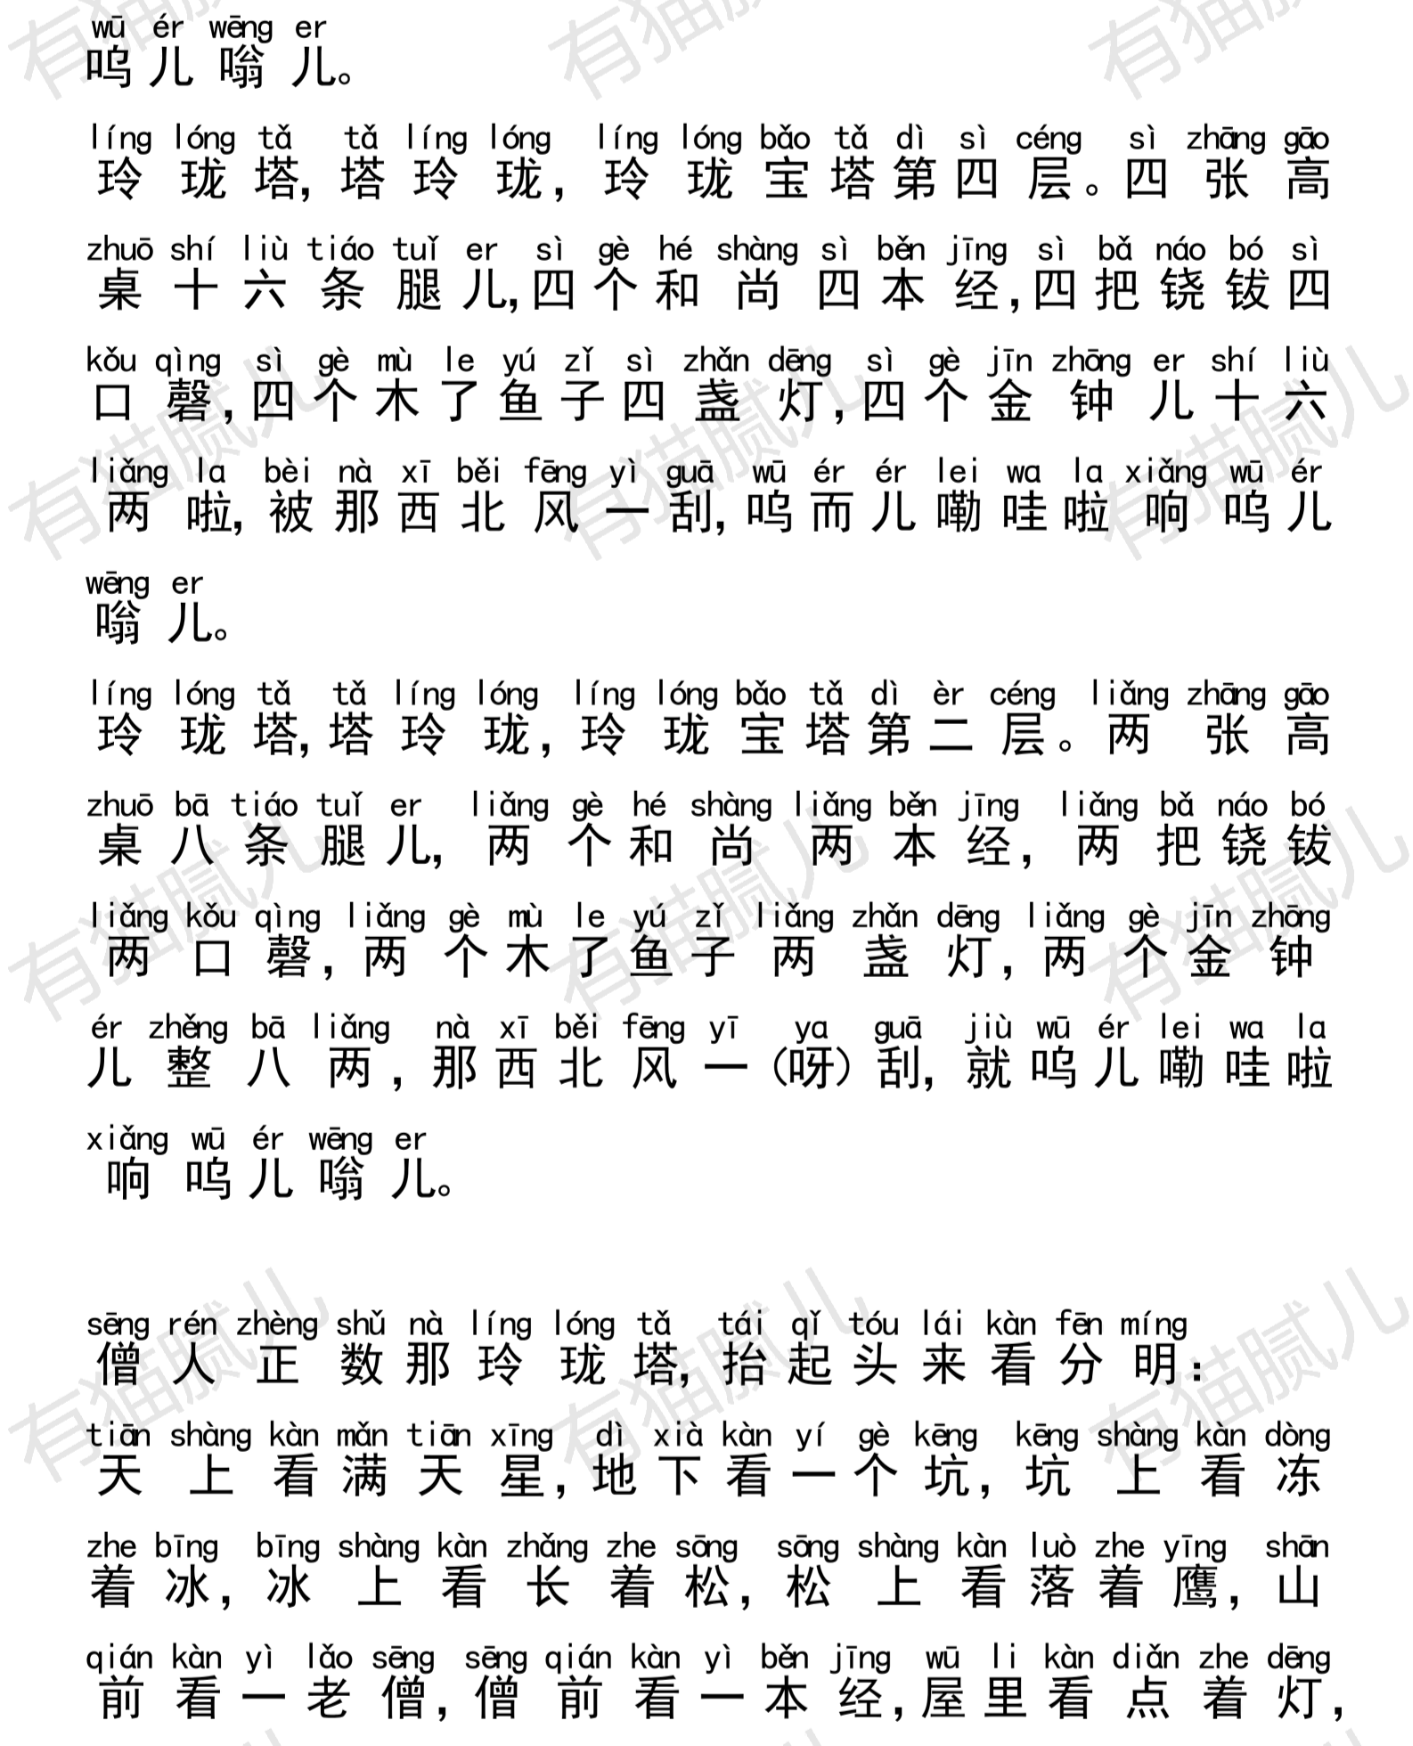 wū ér wēng er
呜儿嗡儿。
líng lóng tǎ tǎ líng lóng líng lóng bǎo tǎ dì sì céng sì zhāng gāo
玲珑塔,塔玲珑,玲珑宝塔第四层。四张高
zhuō shí liù tiáo tuǐ er sì gè hé shàng sì běn jīng sì bǎ náo bó sì
桌十六条腿儿,四个和尚四本经,四把铙钹四
kǒu qìng sì gè mù le yú zǐ sì zhǎn dēng sì gè jīn zhōng er shí liù
口磬,四个木了鱼子四盏灯,四个金钟儿十六
liǎng la bèi nà xī běi fēng yì guā wū ér ér lei wa la xiǎng wū ér
两啦,被那西北风一刮,呜而儿嘞哇啦响呜儿
wēng er
嗡儿。
líng lóng tǎ tǎ líng lóng líng lóng bǎo tǎ dì èr céng liǎng zhāng gāo
玲珑塔,塔玲珑,玲珑宝塔第二层。两张高
zhuō bā tiáo tuǐ er liǎng gè hé shàng liǎng běn jīng liǎng bǎ náo bó
桌八条腿儿,两个和尚两本经,两把铙钹
liǎng kǒu qìng liǎng gè mù le yú zǐ liǎng zhǎn dēng liǎng gè jīn zhōng
两口磬,两个木了鱼子两盏灯,两个金钟
ér zhěng bā liǎng nà xī běi fēng yī ya guā jiù wū ér lei wa la
儿整八两,那西北风一(呀)刮,就呜儿嘞哇啦
xiǎng wū ér wēng er
响呜儿嗡儿。
sēng rén zhèng shǔ nà líng lóng tǎ tái qǐ tóu lái kàn fēn míng
僧人正数那玲珑塔,抬起头来看分明:
tiān shàng kàn mǎn tiān xīng dì xià kàn yí gè kēng kēng shàng kàn dòng
天上看满天星,地下看一个坑,坑上看冻
zhe bīng bīng shàng kàn zhǎng zhe sōng sōng shàng kàn luò zhe yīng shān
着冰,冰上看长着松,松上看落着鹰,山
qián kàn yì lǎo sēng sēng qián kàn yì běn jīng wū li kàn diǎn zhe dēng
前看一老僧,僧前看一本经,屋里看点着灯,
有猫腻儿
有猫腻儿
有猫腻儿
有猫腻儿
有猫腻儿
有猫腻儿
有猫腻儿
有猫腻儿
有猫腻儿